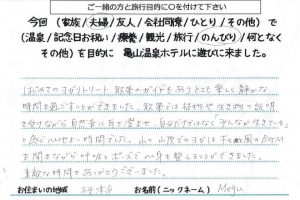 ご一緒の方と旅行目的に〇を付けて下さい
今回（家族/夫婦/友人/会社同僚/ひとり/その他）で
（温泉/記念日お祝い/療養/観光/旅行/のんびり/何となく
その他）を目的に 亀山温泉ホテルに遊びに来ました。
はじめてのヨガリトリート 散策のガイドもありとても楽しく静かな
時間を過ごすことができました。散策では植物や生き物の説明
を受けながら自然音に耳を澄ませ、自分だけではなく「みんなが生きている」
と感じられるいい時間でした。山の上でのヨガは
を聞きながら呼吸とポーズで心身を整えることができました。
素敵な時間をありがとうございました。
お住まいの地域 お名前（ニックネーム） Megu